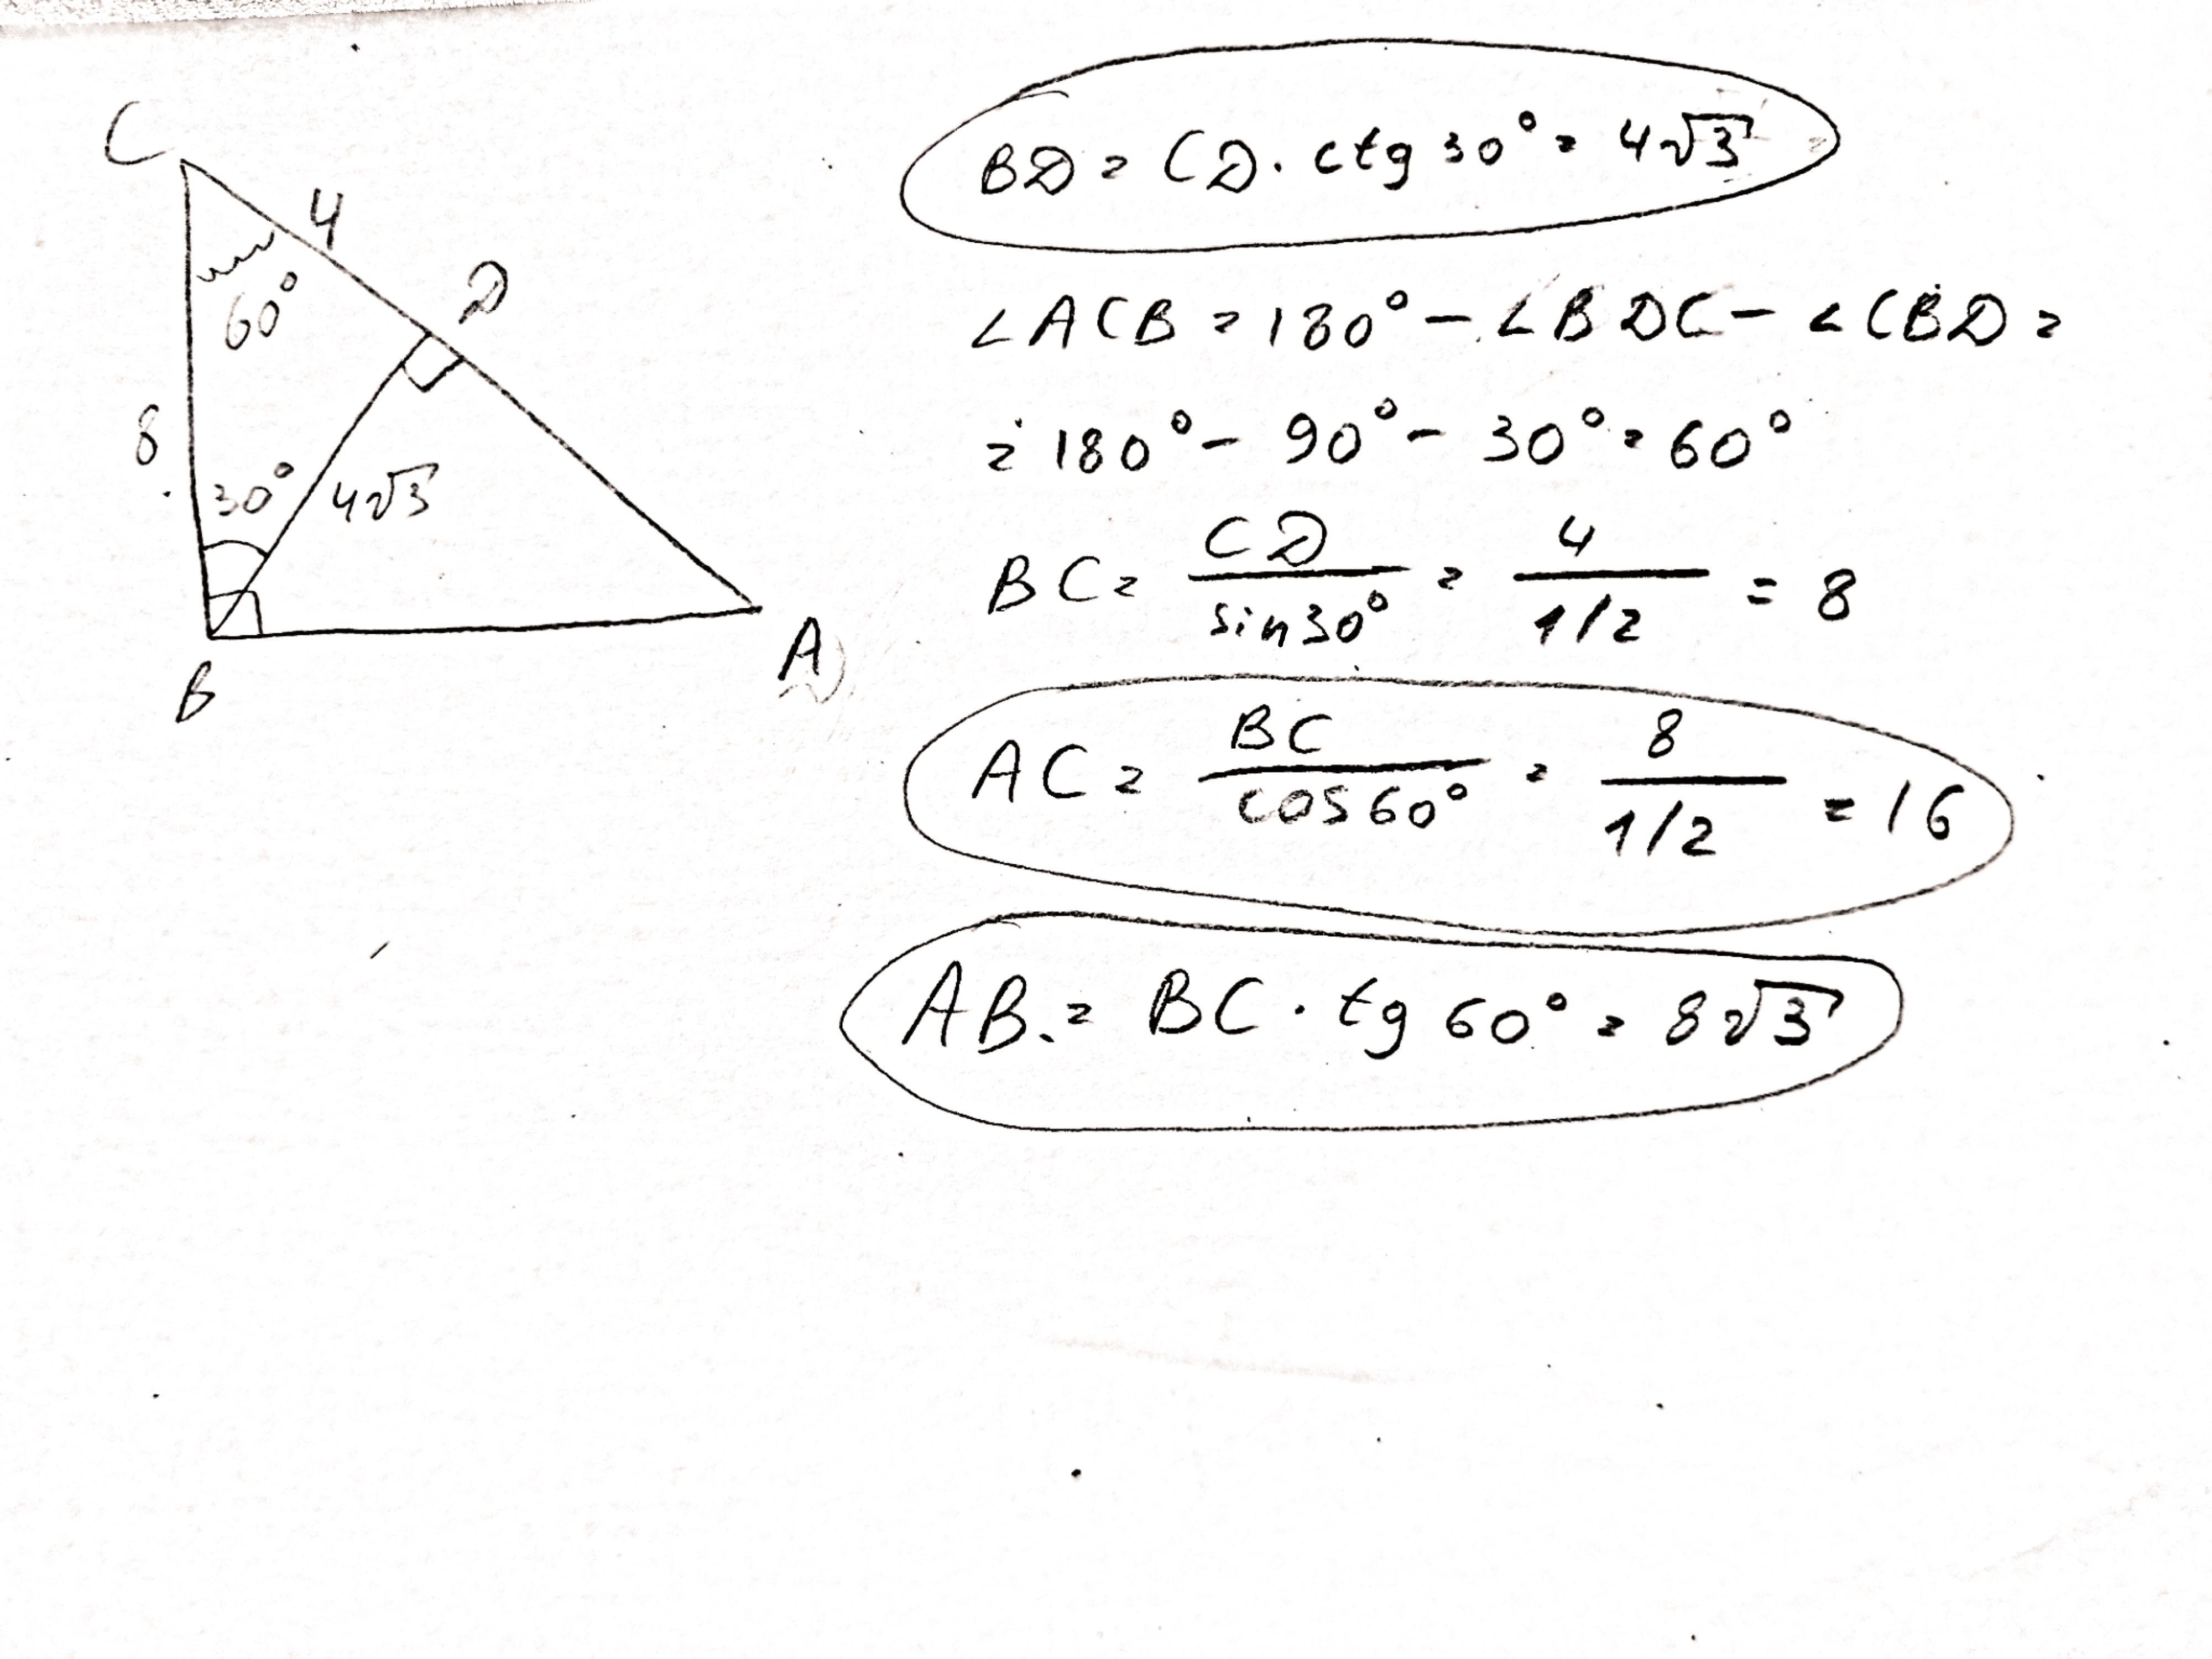 C
4
D
60°
8
30°
4√3
B
A
BD = CD · ctg 30° = 4√3
∠ACB = 180° - ∠BDC - ∠CBD =
= 180° - 90° - 30° = 60°
BC = CD / sin30° = 4 / 1/2 = 8
AC = BC / cos60° = 8 / 1/2 = 16
AB = BC · tg 60° = 8√3